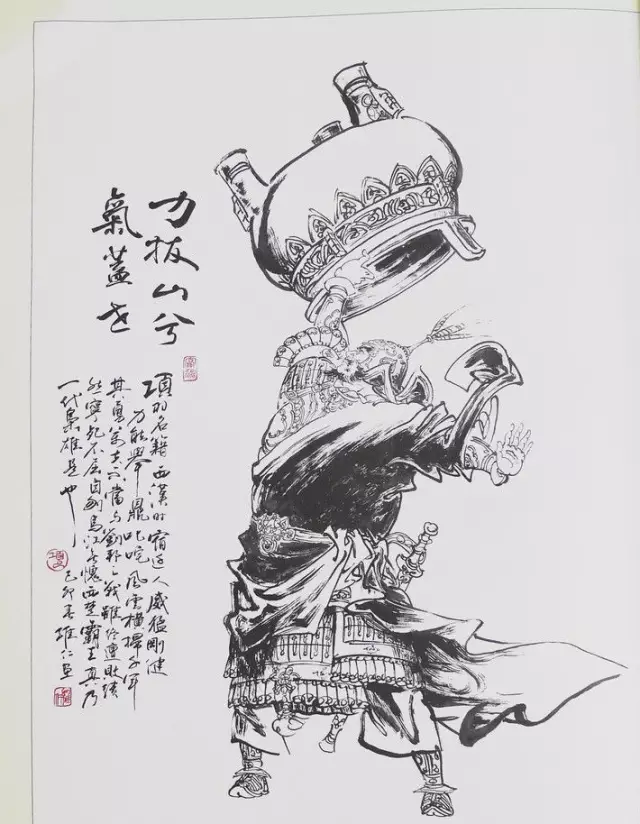 力拔山兮
氣蓋世
項羽名籍西漢时宿迁人威猛剛健
力能舉鼎叱咤風雲橫掃千軍
其勇萬夫不當与劉邦之戰雖終連敗績
然寧死不屈自刎烏江無愧西楚霸王真乃
一代梟雄是也
己卯春雄仁